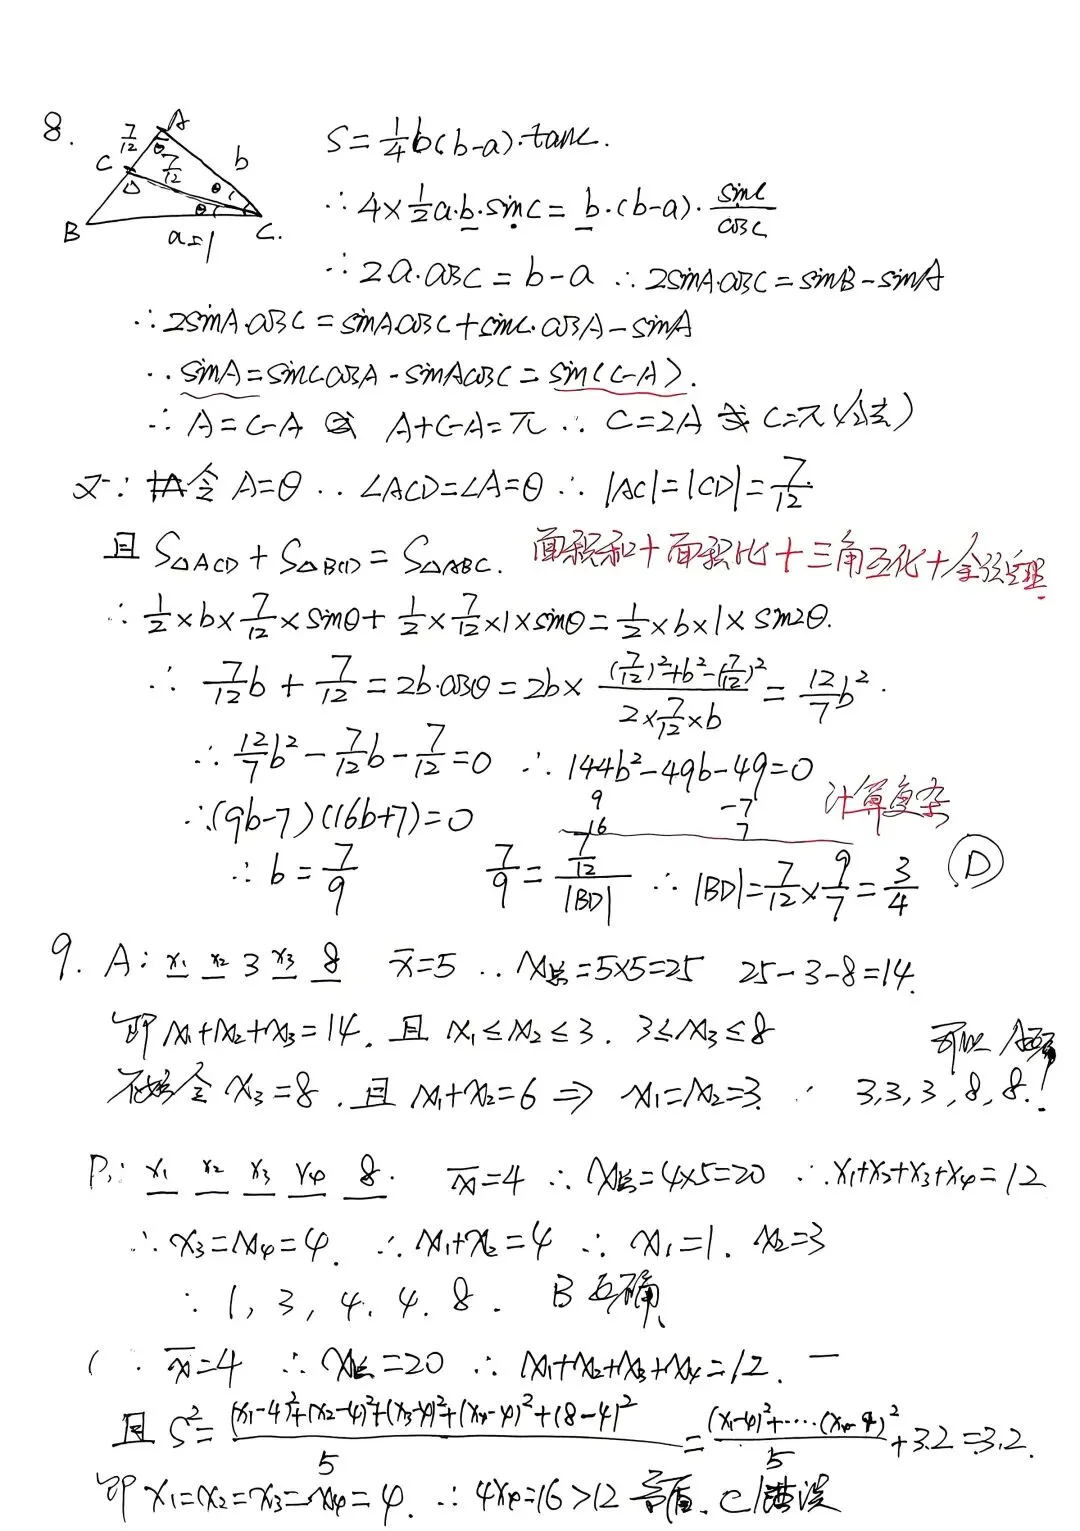 8.
A
7/12
θ
C
7/12
b
D
θ
θ
B
a=1
C.
S=1/4b(b-a)·tanc.
∴4×1/2a·b·sinC=b·(b-a)·sinC/cosC
∴2a·cosC=b-a ∴2sinA·cosC=sinB-sinA
∴2sinA·cosC=sinAcosC+sinC·cosA-sinA
∴sinA=sinCcosA-sinAcosC=sin(C-A).
∴A=C-A 或 A+C-A=π ∴C=2A 或 C=π(舍去)
又∵ 令A=θ ∴∠ACD=∠A=θ ∴|AC|=|CD|=7/12
且S△ACD+S△BCD=S△ABC. 面积和+面积比+三角互化+余弦定理
∴1/2×b×7/12×sinθ+1/2×7/12×1×sinθ=1/2×b×1×sin2θ.
∴7/12b+7/12=2b·cosθ=2b×((7/12)²+b²-(7/12)²)/(2×7/12×b)=12/7b².
∴12/7b²-7/12b-7/12=0 ∴144b²-49b-49=0
9 -7
16 7
计算复杂
∴(9b-7)(16b+7)=0
∴b=7/9 7/9=(7/12)/|BD| ∴|BD|=7/12×9/7=3/4 D
9. A: x₁ x₂ 3 x₃ 8 x̄=5 ∴x总=5×5=25 25-3-8=14.
即x₁+x₂+x₃=14. 且x₁≤x₂≤3. 3≤x₃≤8
不妨令x₃=8. 且x₁+x₂=6⇒x₁=x₂=3. ∴ 3,3,3,8,8.!
可以
B: x₁ x₂ x₃ x₄ 8. x̄=4 ∴x总=4×5=20 ∴x₁+x₂+x₃+x₄=12
∴x₃=x₄=4. ∴x₁+x₂=4 ∴x₁=1. x₂=3
∴1, 3, 4, 4, 8. B正确
C ∵x̄=4 ∴x总=20 ∴x₁+x₂+x₃+x₄=12.
且S²=((x₁-4)²+(x₂-4)²+(x₃-4)²+(x₄-4)²+(8-4)²)/5=((x₁-4)²+····(x₄-4)²)/5+3.2=3.2.
即x₁=x₂=x₃=x₄=4. ∴4×4=16>12 矛盾. C错误